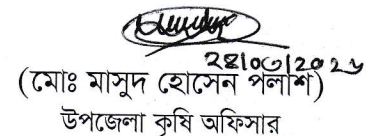 ২৪/০৩/২০২৬
(মোঃ মাসুদ হোসেন পলাশ)
উপজেলা কৃষি অফিসার